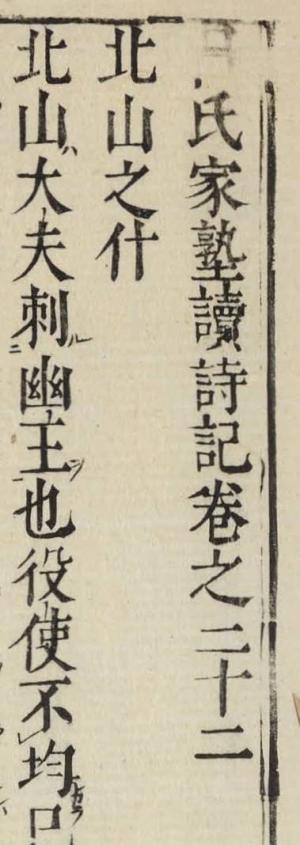 氏家塾讀詩記卷之二十二
北山之什
北山大夫刺幽王也役使不均